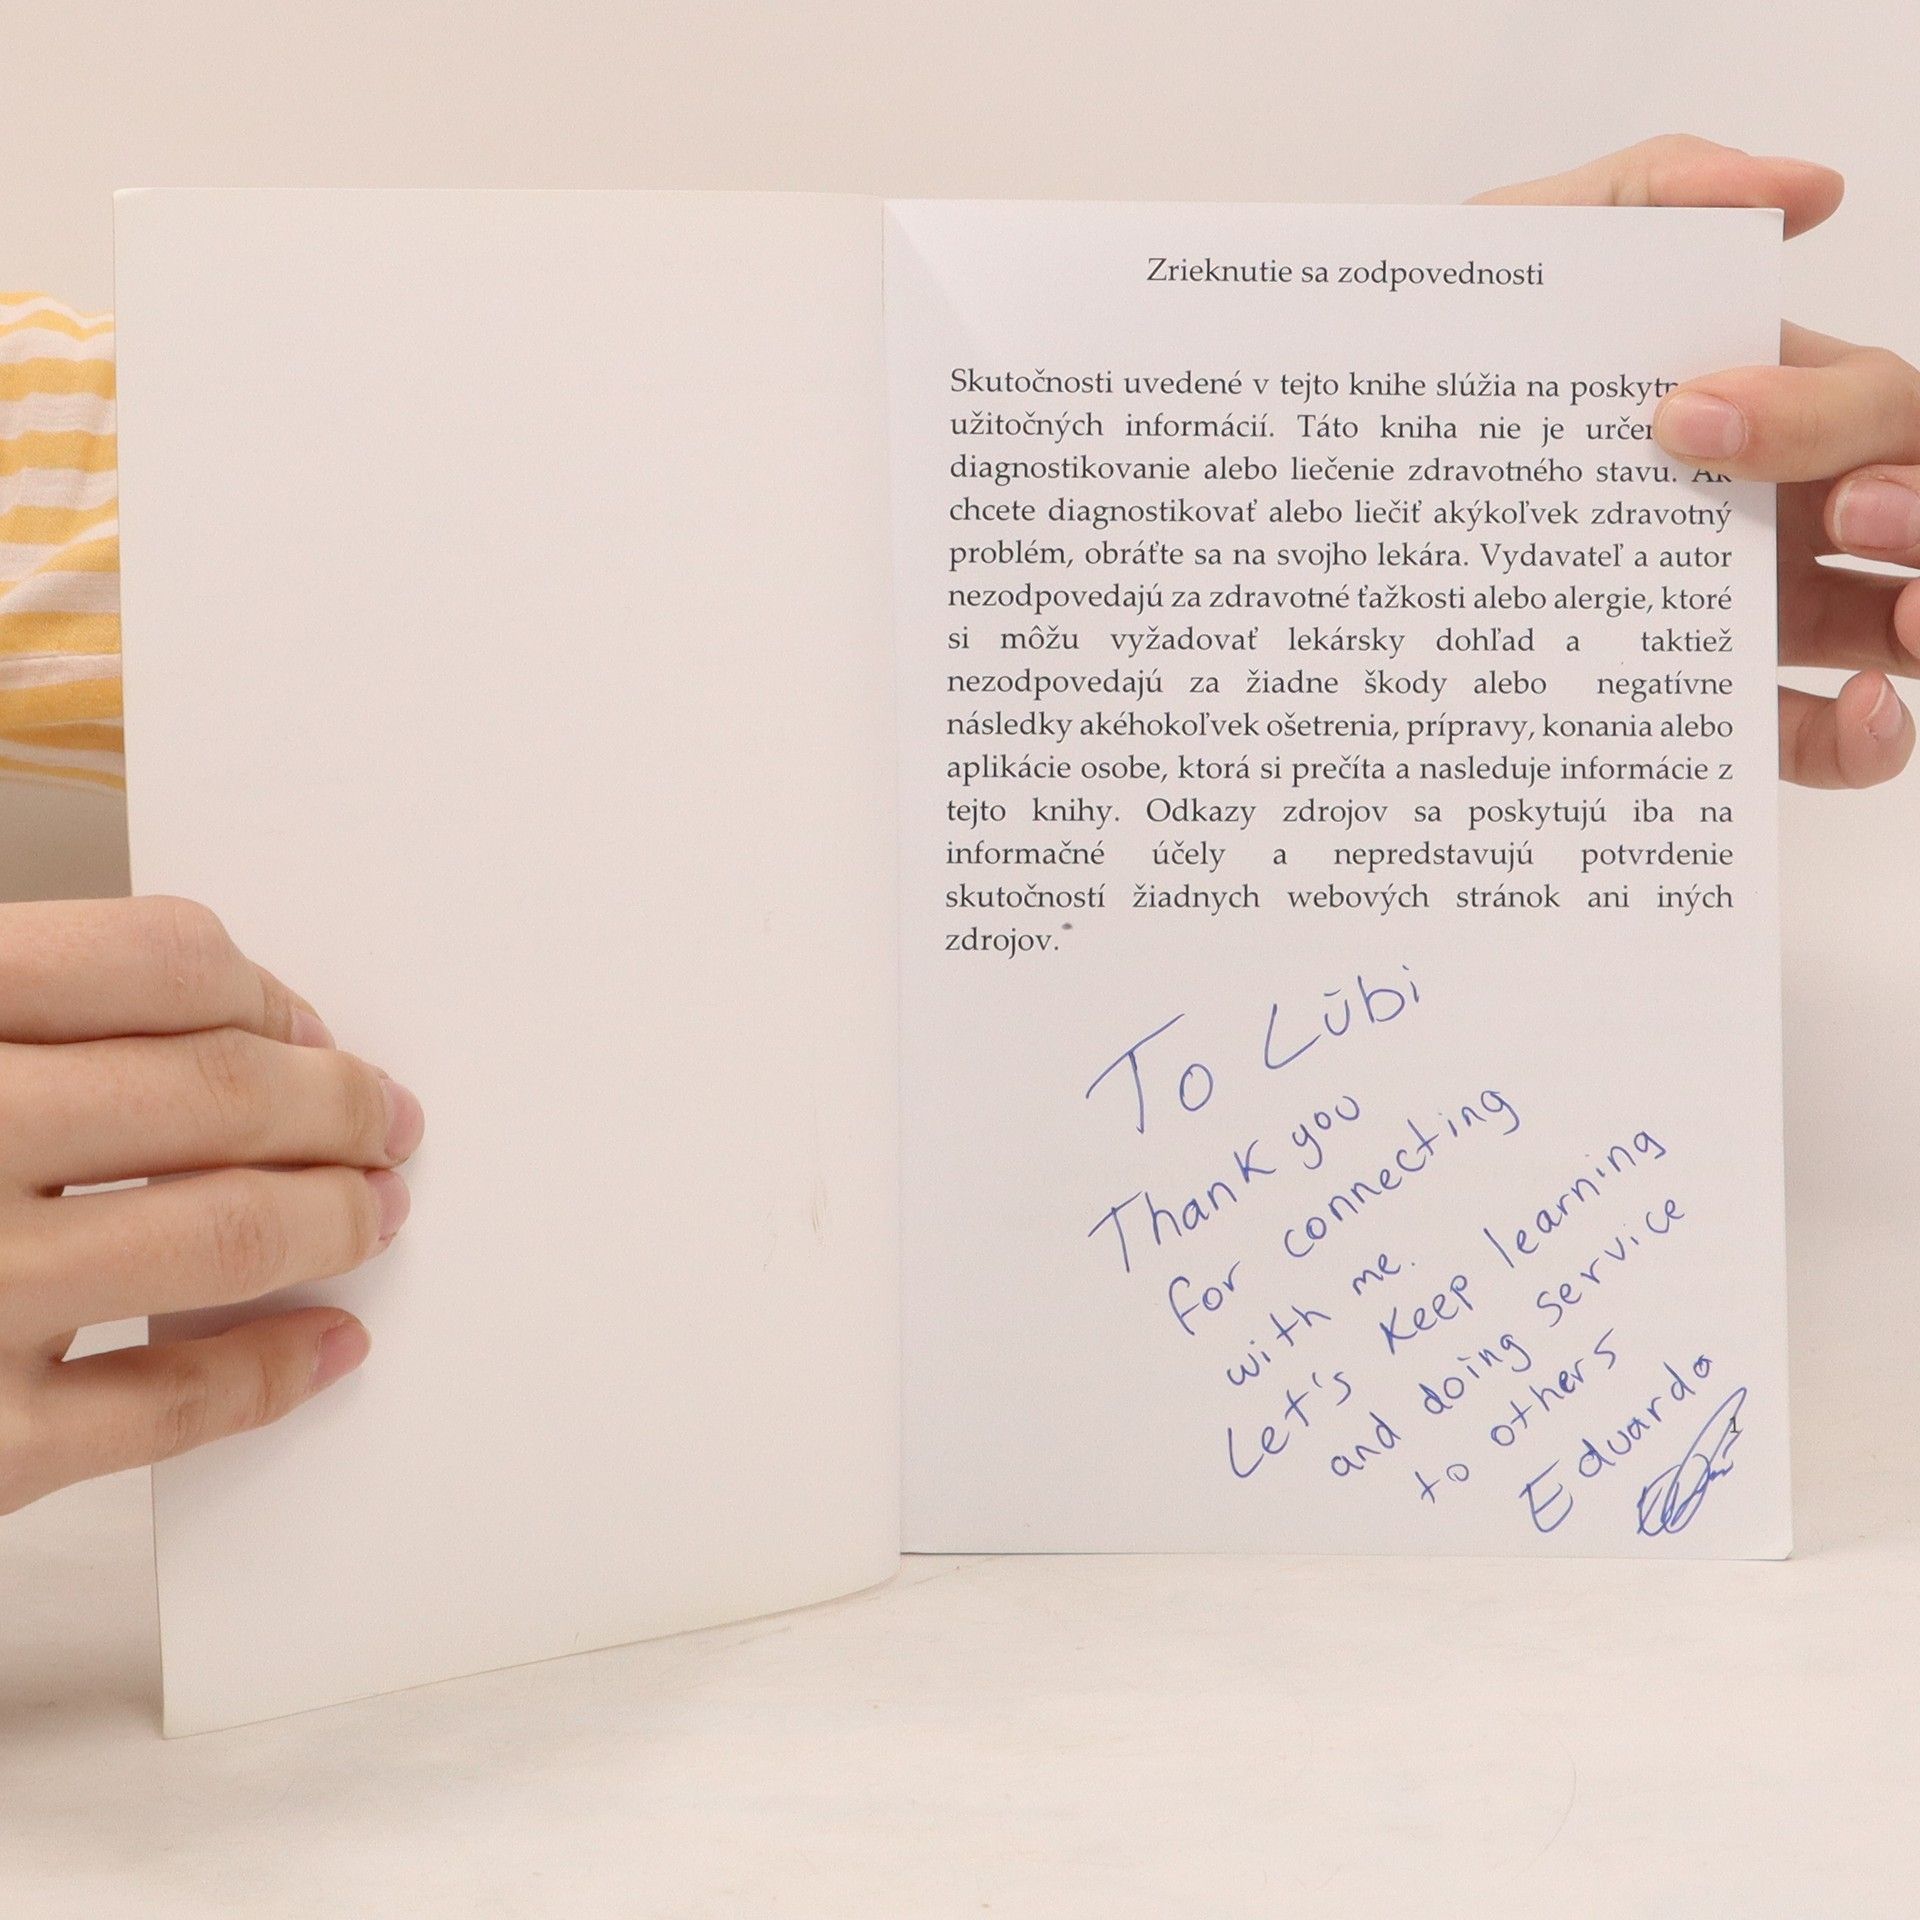 Zrieknutie sa zodpovednosti
Skutočnosti uvedené v tejto knihe slúžia na
užitočných informácií. Táto kniha nie je
diagnostikovanie alebo liečenie zdravotného stavu. Ak
chcete diagnostikovať alebo liečiť akýkoľvek zdravotný
problém, obráťte sa na svojho lekára. Vydavateľ a autor
nezodpovedajú za zdravotné ťažkosti alebo alergie, ktoré
si môžu vyžadovať lekársky dohľad a taktiež
nezodpovedajú za žiadne škody alebo negatívne
následky akéhokoľvek ošetrenia, prípravy, konania alebo
aplikácie osobe, ktorá si prečíta a nasleduje informácie z
tejto knihy. Odkazy zdrojov sa poskytujú iba na
informačné účely a nepredstavujú potvrdenie
skutočností žiadnych webových stránok ani iných
zdrojov.
To Lūbi
Thank you
for connecting
with me.
Let's keep learning
and doing service
to others
Eduardo
1